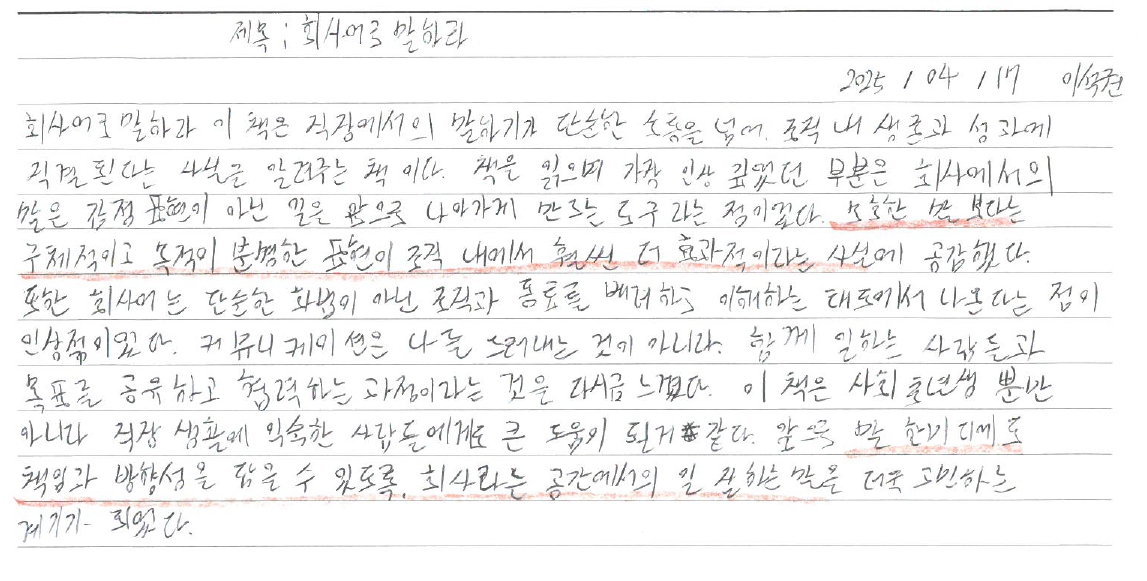 제목 : 회사어로 말하라
2025 / 04 / 17 이석권
회사어로 말하라 이 책은 직장에서의 말하기가 단순한 소통을 넘어. 조직 내 생존과 성과에
직결 된다는 사실을 알려주는 책 이다. 책을 읽으며 가장 인상 깊었던 부분은 회사에서의
말은 감정 표현이 아닌 일은 앞으로 나아가게 만드는 도구 라는 점이었다. 모호한 말 보다는
구체적이고 목적이 분명한 표현이 조직 내에서 훨씬 더 효과적이라는 사실에 공감했다.
또한 회사어는 단순한 화법이 아닌 조직과 동료를 배려하고 이해하는 태도에서 나온다는 점이
인상적이었다. 커뮤니케이션은 나를 드러내는 것이 아니라. 함께 일하는 사람들과
목표를 공유하고 협력하는 과정이라는 것을 다시금 느꼈다. 이 책은 사회 초년생 뿐만
아니라 직장 생활에 익숙한 사람들에게도 큰 도움이 될거 같다. 앞으로 말 한마디에도
책임과 방향성을 담을 수 있도록, 회사라는 공간에서의 일 잘하는 말을 더욱 고민하는
계기가 되었다.